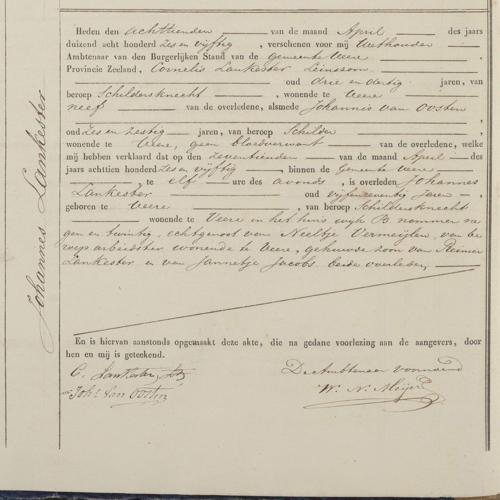 Johannes Lankester
Heden den achttienden van de maand April des jaars
duizend acht honderd zes en vijftig, verschenen voor mij Wethouder
Ambtenaar van den Burgerlijken Stand van de gemeente Veere
Provincie Zeeland, Cornelis Lankester
oud drie en dertig jaren, van
beroep Schildersknecht, wonende te Veere
neef van de overledene, alsmede Johannis van Oosten
oud zes en zestig jaren, van beroep Schilder
wonende te Veere, geen bloedverwant van de overledene, welke
mij hebben verklaard dat op den zeventienden van de maand April des
jaars achttien honderd zes en vijftig, binnen de Gemeente Veere
, te elf ure des avonds, is overleden Johannes
Lankester oud jaren
geboren te Veere, van beroep Schildersknecht
wonende te Veere in het huis wijk B. nommer ne
gen en twintig, echtgenoot van Neeltje Vermeijlen, van be
roep arbeidster wonende te Veere, gehuwde zoon van Reinier
Lankester en van Jannetje Jacobs, beide overleden,
En is hiervan aanstonds opgemaakt deze akte, die na gedane voorlezing aan de aangevers, door
hen en mij is geteekend.
C. Lankester
Joh. van Oosten
De Ambtenaar voornoemd
W. N. Meijer